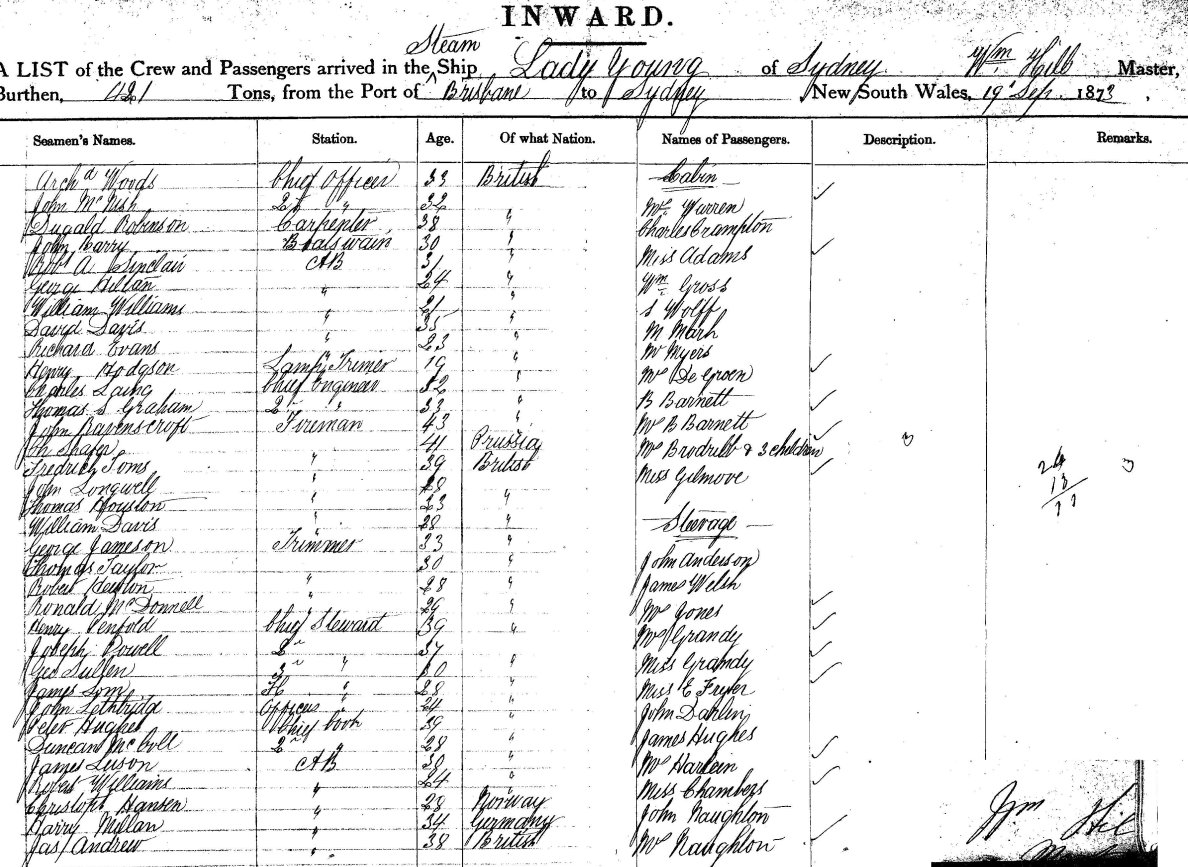 INWARD.
Steam
A LIST of the Crew and Passengers arrived in the Ship Lady Young of Sydney Wm Hill Master,
Burthen, 421 Tons, from the Port of Brisbane to Sydney New South Wales, 19 Sep. 1873,
Seamen's Names. Station. Age. Of what Nation. Names of Passengers. Description. Remarks.
Archd Woods Chief Officer 33 British Cabin
John McNish 2d " 32 Mrs Warren
Dugald Robinson Carpenter 38 " Charles Crampton
John Barry Boatswain 30 " Miss Adams
Robt A Sinclair AB 31 "
George Hillan " 24 " Wm Gross
William Williams " 21 " S Wolff
David Davis " 35 " M Mark
Richard Evans " 23 " Mr Myers
Henry Hodgson Lamp Trimer 19 " Mrs De Groen
Charles Laing Chief Engineer 32 " B Barnett
Thomas S Graham 2 " 33 " Mrs B Barnett
John Ravenscroft Fireman 43 "
41 Prussia Mrs Brodribb & 3 children
Fredrick Toms " 39 British Miss Gilmove
John Longwell " 28
Thomas Houston " 23 "
William Davis " 28 " Steerage
George Jameson Trimmer 33 "
Thomas Taylor 30 " John Anderson
Robert " 28 " James Welsh
Ronald McDonnell " 29 " Mrs Jones
Henry Penfold Chief Steward 39 " Mrs Grandy
Joseph Powell 2 37
Geo Sullen 3 " " Miss Grandy
James " 28 " Miss E Fryer
John Lethbridge Officers " 24 " John Darling
Peter Hughes Chief Cook 39 " James Hughes
Duncan McColl 2 " 28 "
James AB 38 " Mrs Harlein
Robert Williams " 24 " Miss Chambers
Christopr Hansen " 28 Norway John Naughton
Harry Millan " 34 Germany
Jas Andrew " 38 British Mrs Naughton
24
13
Wm Hil